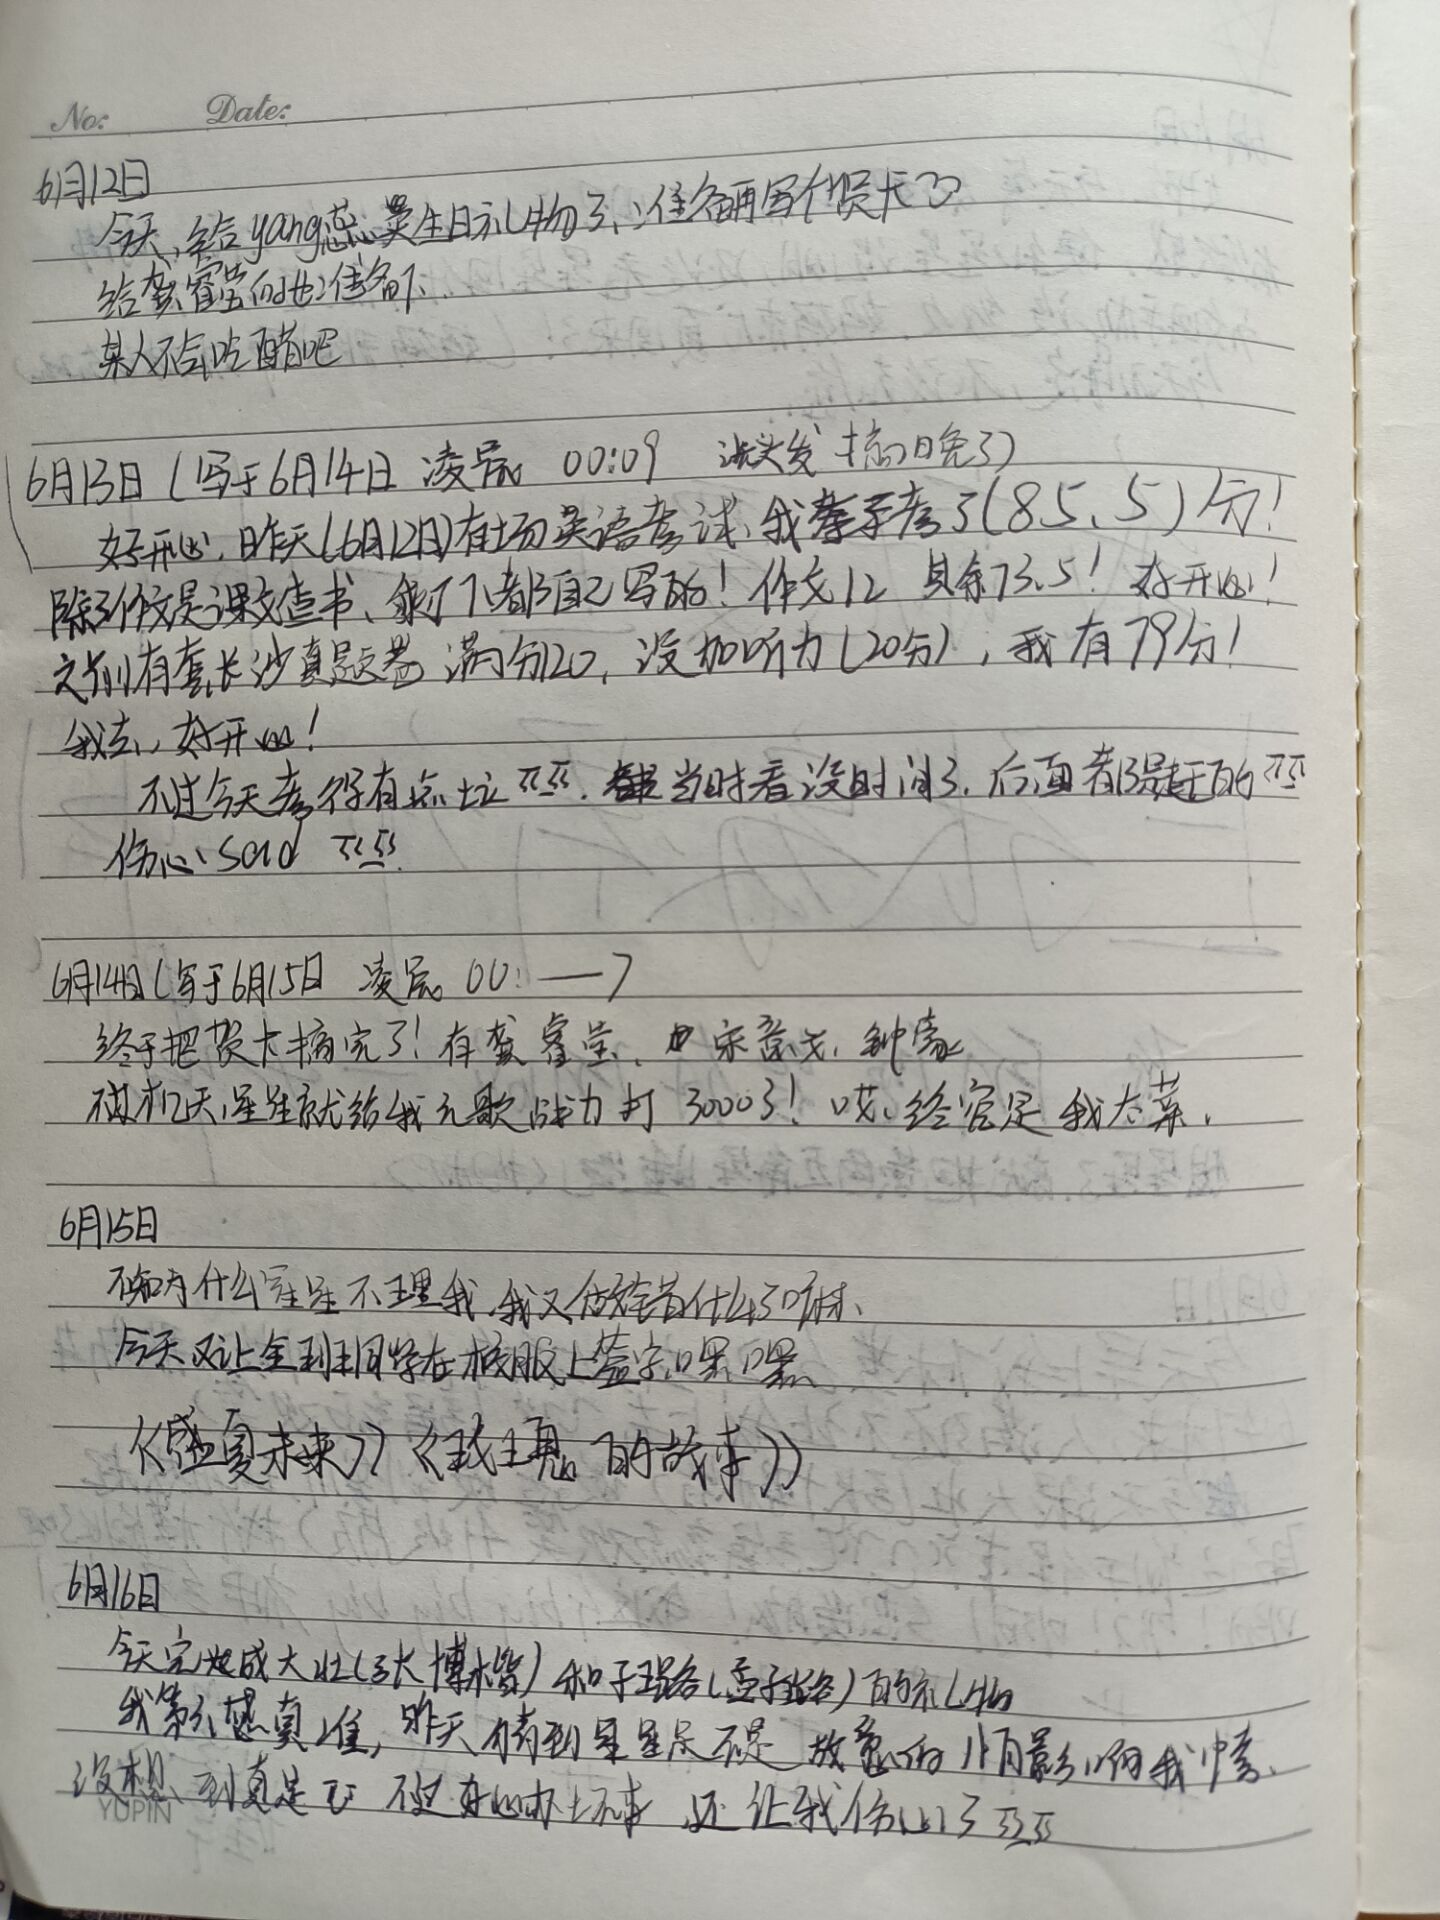 No: Date:
6月12日
今天,给yang蕊买生日礼物了,准备再写个贺卡
给龚睿莹的也准备下
某人不会吃醋吧
6月13日(写于6月14日 凌晨 00:09 洗头发 搞晚了)
好开心,昨天(6月12日)有场英语考试,我考了(85.5)分!
除了作文是课文查书、剩下都自己写的!作文12 其余73.5!好开心!
之前有套长沙真题卷 满分120,没加听力(20分),我有79分!
我去,好开心!
不过今天考得有点垃 当时看没时间了,后面都是赶的
伤心 sad
6月14日(写于6月15日 凌晨 00:——7
终于把贺卡搞完了!有龚睿莹、宋意戈、钟
没几天,星星就给我元歌战力打3000了!哎,终究是我太菜.
6月15日
不知为什么星星不理我,我又做错什么了吗
今天又让全班同学在校服上签字,嘿嘿
《盛夏未来》《我们的故事》
6月16日
今天完成大壮(张博楷)和子璐(孟子璐)的礼物
我第六感真准,昨天猜到星星是不是故意的 怕影响我情
没想到真是 不过好心办坏事 还让我伤心了
YUPIN